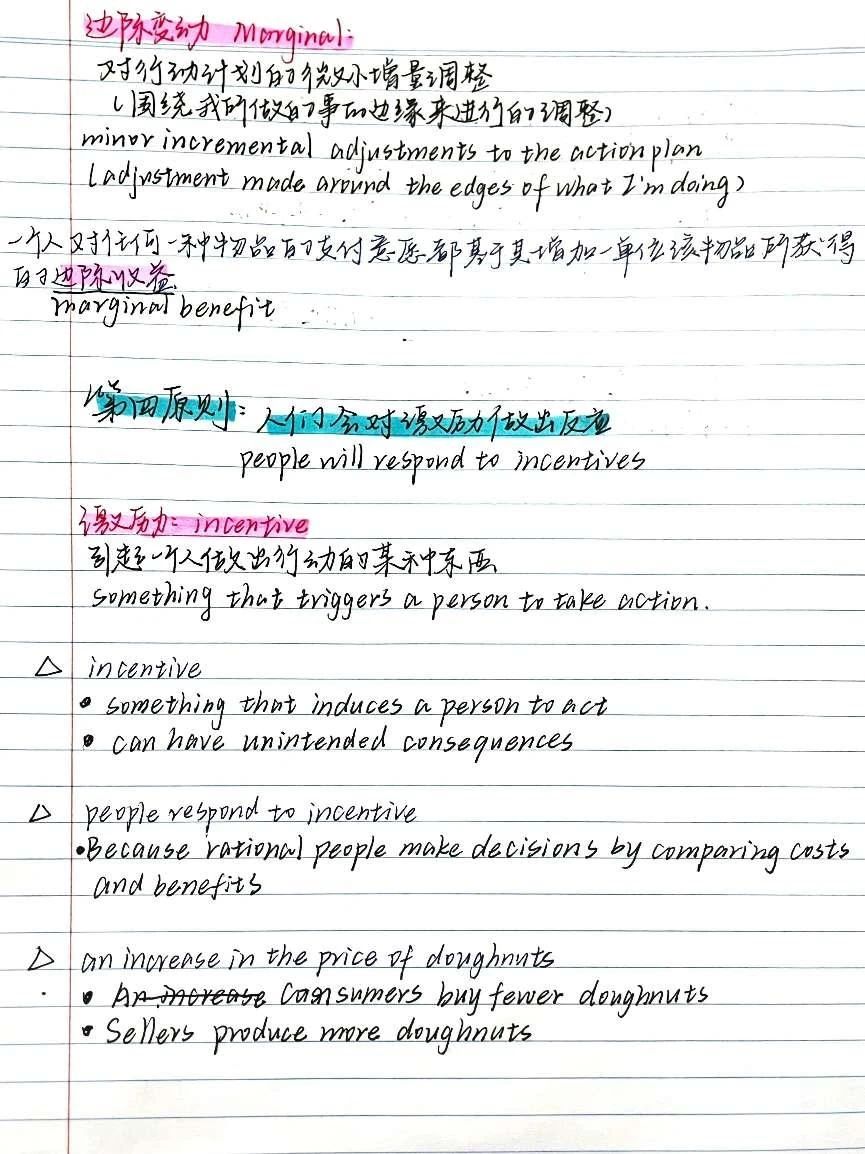 边际变动 Marginal:
对行动计划的微小增量调整
(围绕我所做的事的边缘来进行的调整)
minor incremental adjustments to the action plan
(adjustment made around the edges of what I'm doing)
一个人对任何一种物品的支付意愿都基于其增加一单位该物品所获得
的边际收益
marginal benefit
第四原则: 人们会对激励做出反应
people will respond to incentives
激励: incentive
引起一个人做出行动的某种东西
something that triggers a person to take action.
△ incentive
• something that induces a person to act
• can have unintended consequences
△ people respond to incentive
•Because rational people make decisions by comparing costs
and benefits
△ an increase in the price of doughnuts
• An increase Consumers buy fewer doughnuts
• Sellers produce more doughnuts